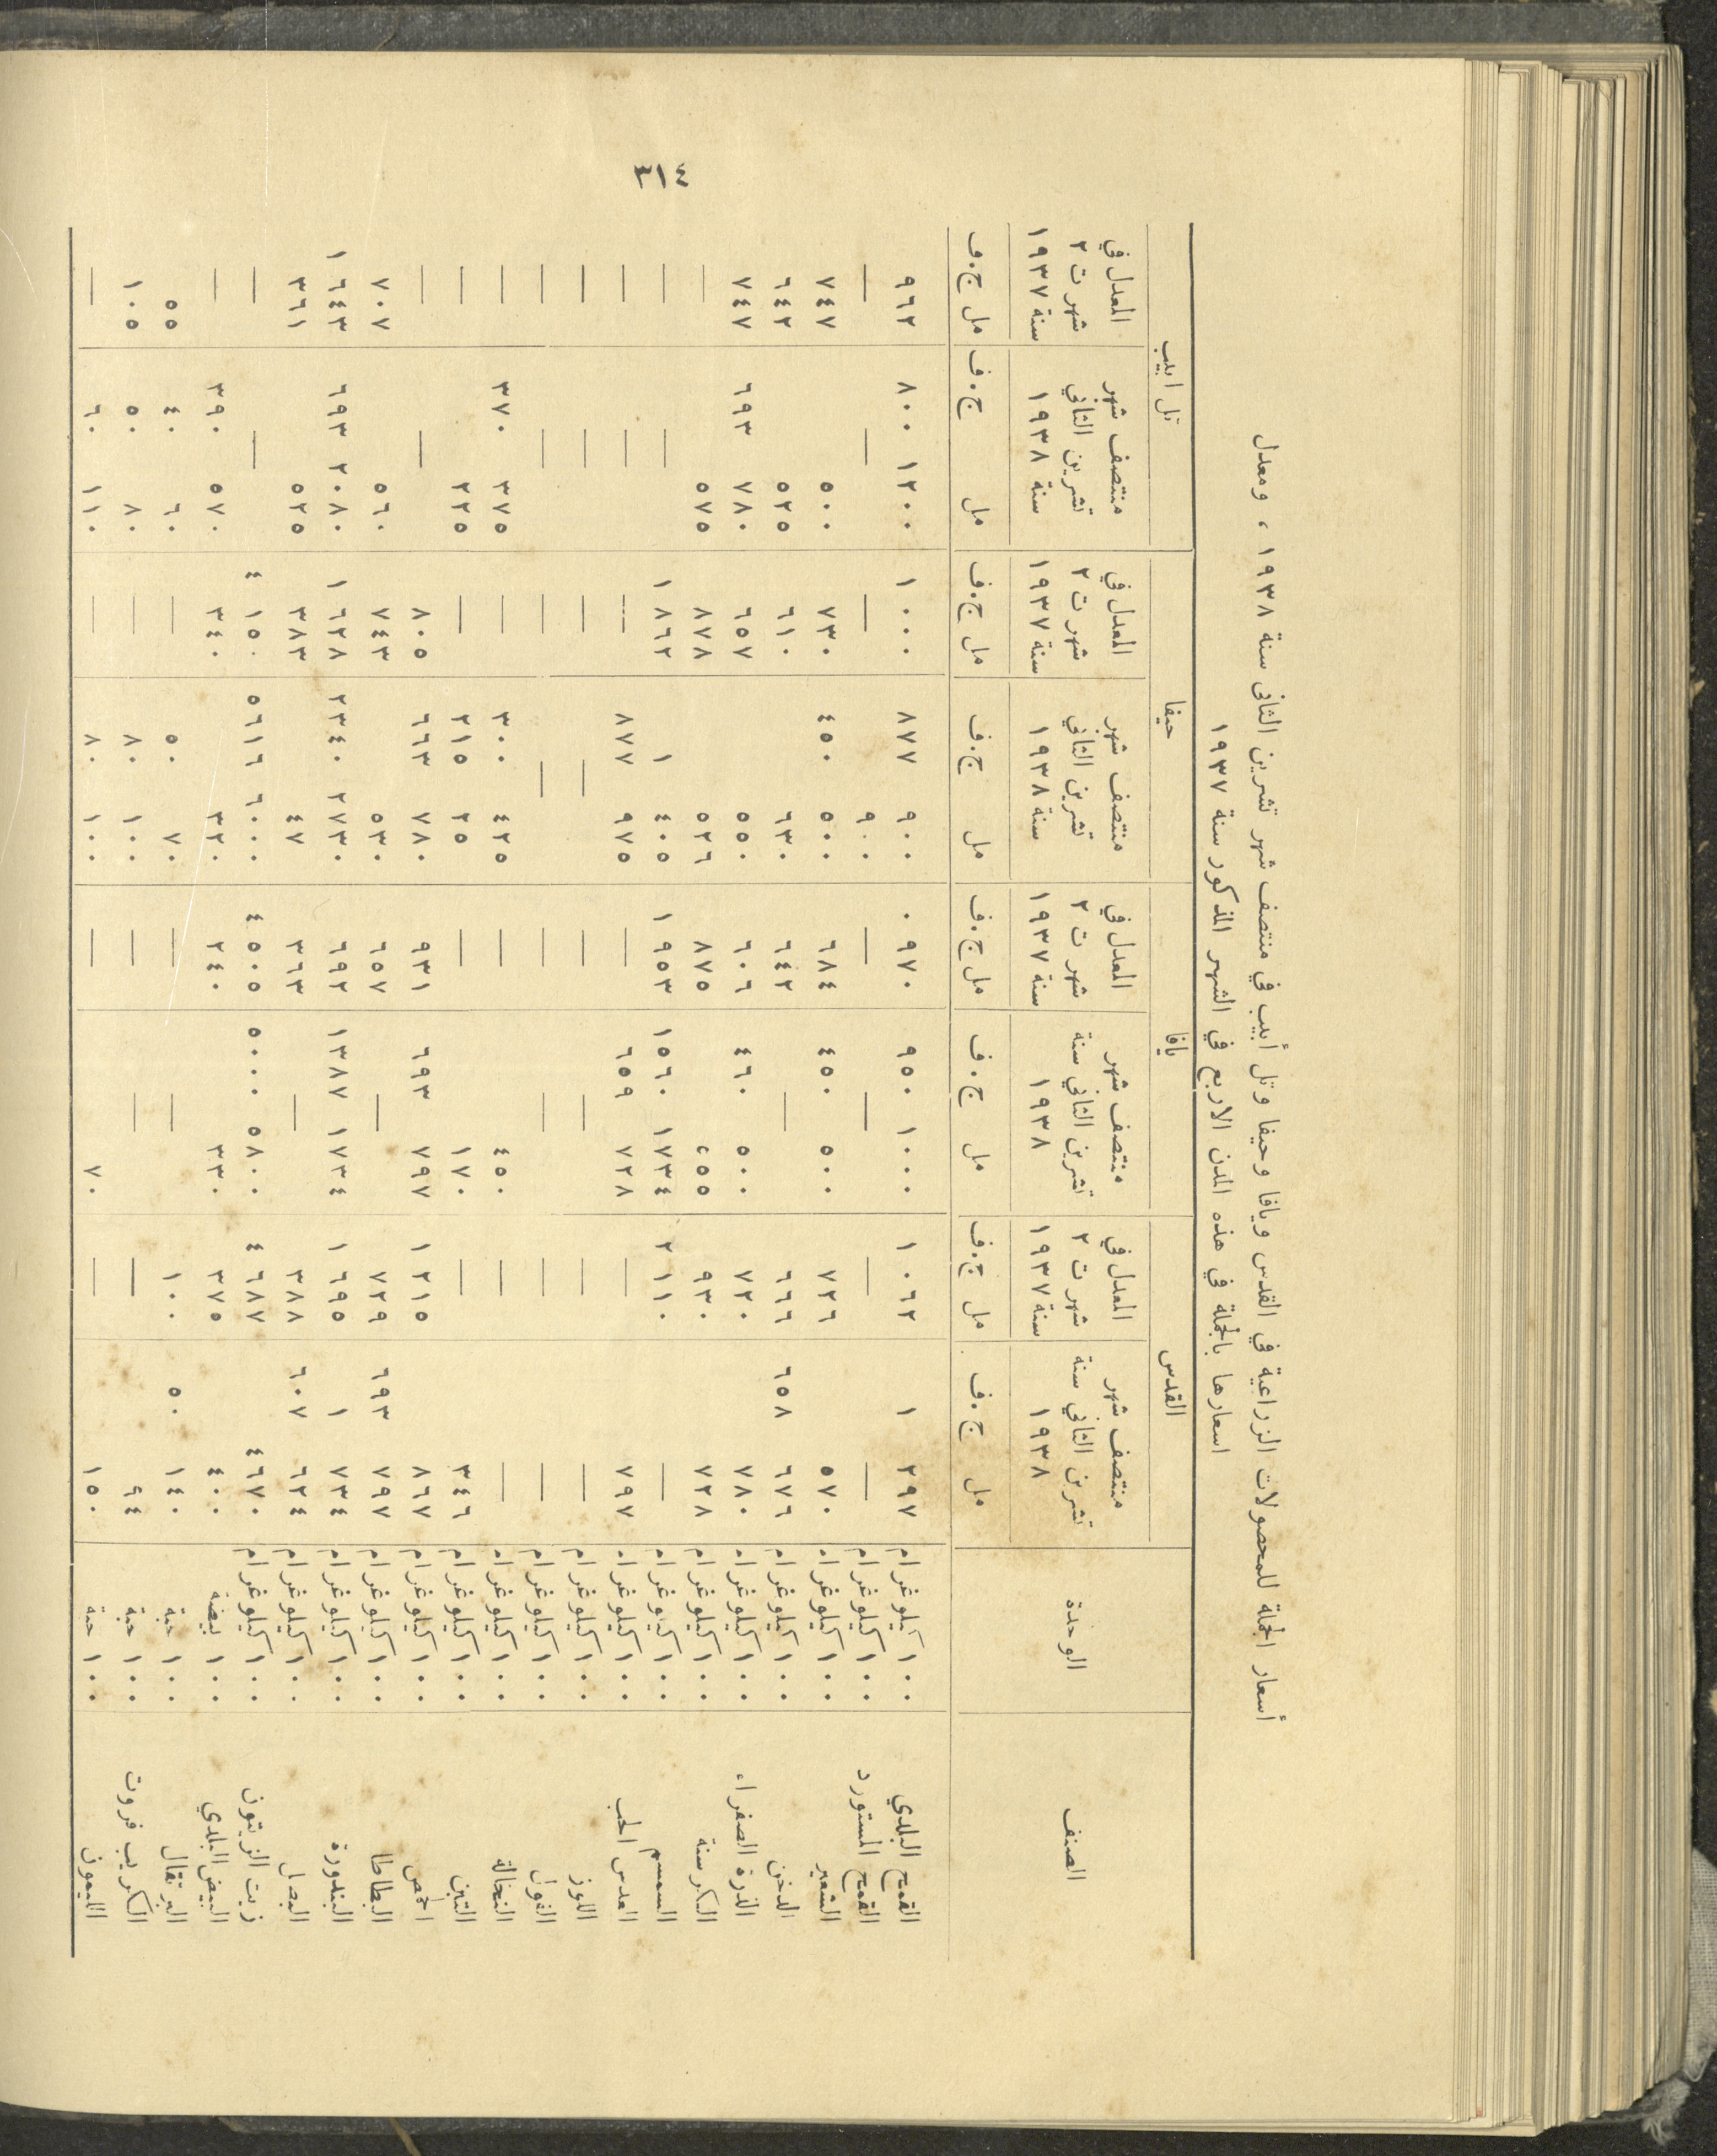 ٣١٤
أسعار الجملة للمحصولات الزراعية في القدس ويافا وحيفا وتل أبيب في منتصف شهر تشرين الثاني سنة ١٩٣٨ ، ومعدل
اسعارها بالجملة في هذه المدن الاربع في الشهر المذكور سنة ١٩٣٧
القدس يافا حيفا تل ابيب
الصنف الوحدة
منتصف شهر المعدل في منتصف شهر المعدل في منتصف شهر المعدل في منتصف شهر المعدل في
تشرين الثاني سنة شهر ت ٢ تشرين الثاني سنة شهر ت ٢ تشرين الثاني شهر ت ٢ تشرين الثاني شهر ت ٢
١٩٣٨ سنة ١٩٣٧ ١٩٣٨ سنة ١٩٣٧ سنة ١٩٣٨ سنة ١٩٣٧ سنة ١٩٣٨ سنة ١٩٣٧
مل ج.ف مل ج.ف مل ج.ف مل ج.ف مل ج.ف مل ج.ف مل ج.ف مل ج.ف
القمح البلدي ١٠٠ كيلوغرام ١ ٢٩٧ ١ ٠٦٢ ٩٥٠ ١٠٠٠ ٠ ٩٧٠ ٨٧٧ ٩٠٠ ١ ٠٠٠ ٨٠٠ ١٢٠٠ ٩٦٢
القمح المستورد ١٠٠ كيلوغرام — — — — ٩٠٠ — — —
الشعير ١٠٠ كيلوغرام ٥٧٠ ٧٢٦ ٤٥٠ ٥٠٠ ٦٨٤ ٤٥٠ ٥٠٠ ٧٣٠ ٥٠٠ ٧٤٧
الدخن ١٠٠ كيلوغرام ٦٥٨ ٦٧٦ ٦٦٦ — ٦٤٢ ٦٣٠ ٦١٠ ٥٢٥ ٦٤٢
الذرة الصفراء ١٠٠ كيلوغرام ٧٨٠ ٧٢٠ ٤٦٠ ٥٠٠ ٦٠٦ ٥٥٠ ٦٥٧ ٦٩٣ ٧٨٠ ٧٤٧
الكرسنة ١٠٠ كيلوغرام ٧٢٨ ٩٣٠ ٨٧٥ ٥٢٦ ٨٧٨ ٥٧٥ —
السمسم ١٠٠ كيلوغرام — ٢ ١١٠ ١٥٦٠ ١٧٣٤ ١ ٩٥٣ ١ ٤٠٥ ١ ٨٦٢ — —
العدس الحب ١٠٠ كيلوغرام ٧٩٧ — ٦٥٩ ٧٢٨ — ٨٧٧ ٩٧٥ — — —
اللوز ١٠٠ كيلوغرام — — — — — — — —
الفول ١٠٠ كيلوغرام — — — — — — — —
النخالة ١٠٠ كيلوغرام — — ٤٥٠ — ٣٠٠ ٤٢٥ — ٣٧٠ ٣٧٥ —
التبن ١٠٠ كيلوغرام ٣٤٦ — ١٧٠ — ٢١٥ ٢٥ — ٢٢٥ —
الحمص ١٠٠ كيلوغرام ٨٦٧ ١ ٢١٥ ٦٩٣ ٧٩٧ ٩٣١ ٦٦٣ ٧٨٠ ٨٠٥ — —
البطاطا ١٠٠ كيلوغرام ٦٩٣ ٧٩٧ ٧٢٩ — ٦٥٧ ٥٣٠ ٧٤٣ ٥٦٠ ٧٠٧
البندورة ١٠٠ كيلوغرام ١ ٧٣٤ ١ ٦٩٥ ١٣٨٧ ١٧٣٤ ٦٩٢ ٢٣٤٠ ٢٧٣٠ ١ ٦٢٨ ٦٩٣ ٢٠٨٠ ١ ٦٤٣
البصل ١٠٠ كيلوغرام ٦٠٧ ٦٢٤ ٣٨٨ — ٣٦٣ ٤٧ ٣٨٣ ٥٢٥ ٣٦١
زيت الزيتون ١٠٠ كيلوغرام ٤٦٧٠ ٤ ٦٨٧ ٥٠٠٠ ٥٨٠٠ ٤ ٥٠٥ ٥٦١٦ ٦٠٠٠ ٤ ١٥٠ — —
البيض البلدي ١٠٠ بيضة ٤٠٠ ٣٧٥ ٣٣٠ ٢٤٠ ٣٢٠ ٣٤٠ ٣٩٠ ٥٧٠ —
البرتقال ١٠٠ حبة ٥٠ ١٤٠ ١٠٠ — — ٥٠ ٧٠ — ٤٠ ٦٠ ٥٥
الكريب فروت ١٠٠ حبة ٦٤ — — — ٨٠ ١٠٠ — ٥٠ ٨٠ ١٠٥
الليمون ١٠٠ حبة ١٥٠ — ٧٠ — ٨٠ ١٠٠ — ٦٠ ١١٠ —